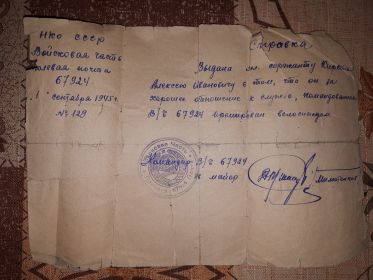 НКО СССР
Войсковая часть
полевая почта
67924
1 сентября 1945 г.
№ 129
Справка
Выдана ст. сержанту
Алексею Ивановичу в том, что он за
хорошее отношение к службе, командованием
В/Ч 67924 премирован велосипедом
Командир В/Ч 67924
майор